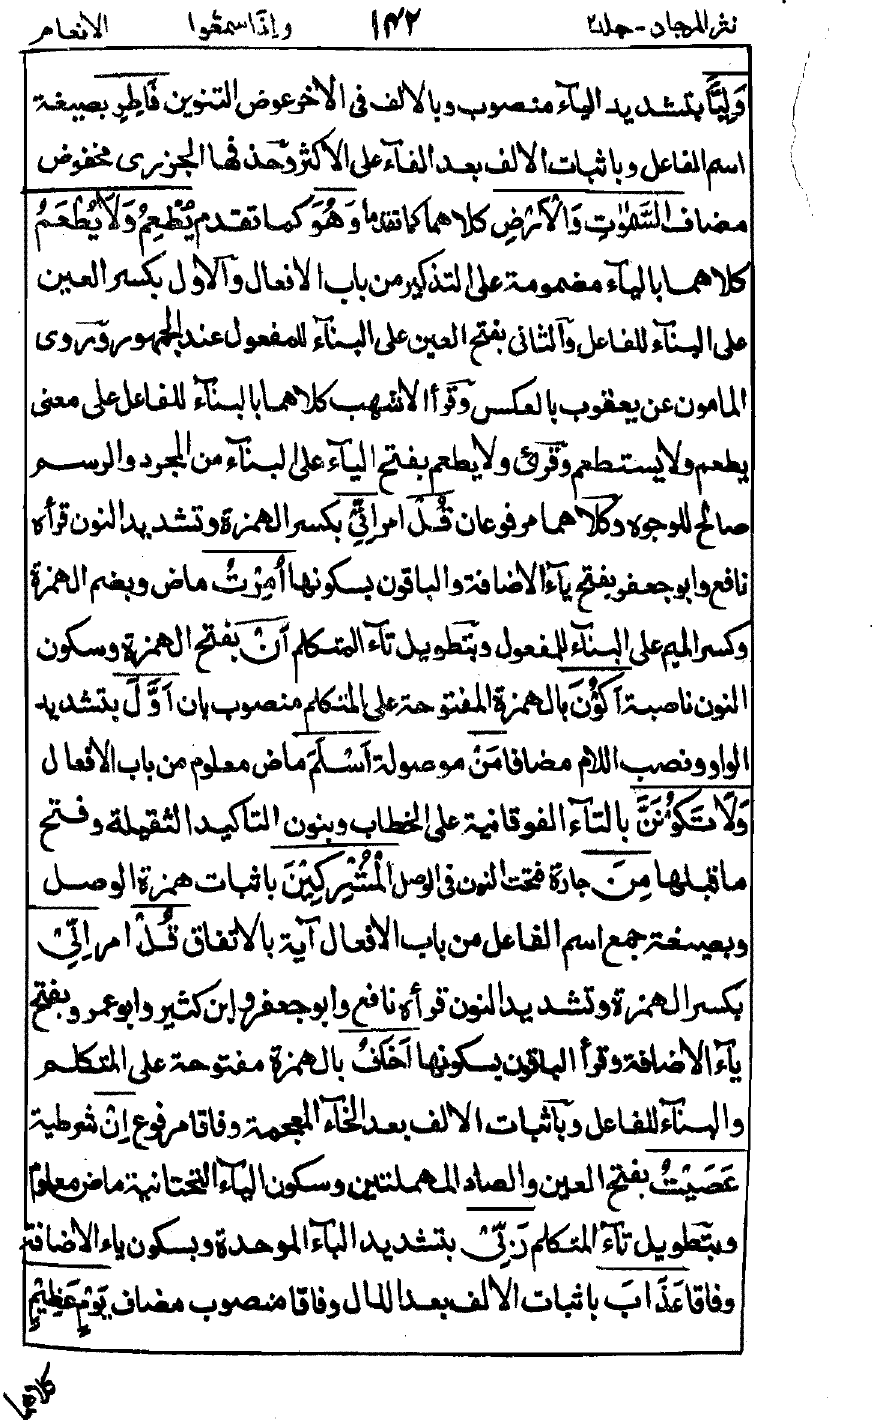 نثر المرجان - جلد ٢ ١٤٢ واذا سمعوا الانعام
وَلِيًّا بتشديد الياء منصوب وبالالف فى الأخر عوض التنوين فَاطِرِ بصيغة
اسم الفاعل وباثبات الالف بعد الفاء على الاكثر وحذفها الجزرى مخفوض
مضاف السَّمٰوٰتِ وَالْاَرْضِ كلاهما كما تقدما وَهُوَ كما تقدم يُطْعِمُ وَلَا يُطْعَمُ
كلاهما بالياء مضمومة على التذكير من باب الافعال والاول بكسر العين
على البناء للفاعل والثانى بفتح العين على البناء للمفعول عند الجمهور وروى
المامون عن يعقوب بالعكس وقرأ الاشهب كلاهما بالبناء للفاعل على معنى
يطعم ولا يستطعم وقرئ ولا يطعم بفتح الياء على البناء من المجرد والرسم
صالح للوجوه وكلاهما مرفوعان قُلْ امر اِنِّىْ بكسر الهمزة وتشديد النون قرأه
نافع وابو جعفر بفتح ياء الاضافة والباقون بسكونها اُمِرْتُ ماض وبضم الهمزة
وكسر الميم على البناء للمفعول وبتطويل تاء المتكلم اَنْ بفتح الهمزة وسكون
النون ناصبة اَكُوْنَ بالهمزة المفتوحة على المتكلم منصوب بان اَوَّلَ بتشديد
الواو ونصب اللام مضاف مَنْ موصولة اَسْلَمَ ماض معلوم من باب الافعال
وَلَا تَكُوْنَنَّ بالتاء الفوقانية على الخطاب وبنون التاكيد الثقيلة وفتح
ما قبلها مِنَ جارة فتحت النون فى الوصل الْمُشْرِكِيْنَ باثبات همزة الوصل
وبصيغة جمع اسم الفاعل من باب الافعال آية بالاتفاق قُلْ امر اِنِّىْ
بكسر الهمزة وتشديد النون قرأه نافع وابو جعفر وابن كثير وابو عمرو بفتح
ياء الاضافة وقرأ الباقون بسكونها اَخَافُ بالهمزة مفتوحة على المتكلم
والبناء للفاعل وباثبات الالف بعد الخاء المعجمة وفاقا مرفوع اِنْ شرطية
عَصَيْتُ بفتح العين والصاد المهملتين وسكون الياء التحتانية ماض معلوم
وبتطويل تاء المتكلم رَبِّىْ بتشديد الباء الموحدة وبسكون ياء الاضافة
وفاقا عَذَابَ باثبات الالف بعد الذال وفاقا منصوب مضاف يَوْمٍ عَظِيْمٍ
كلاهما